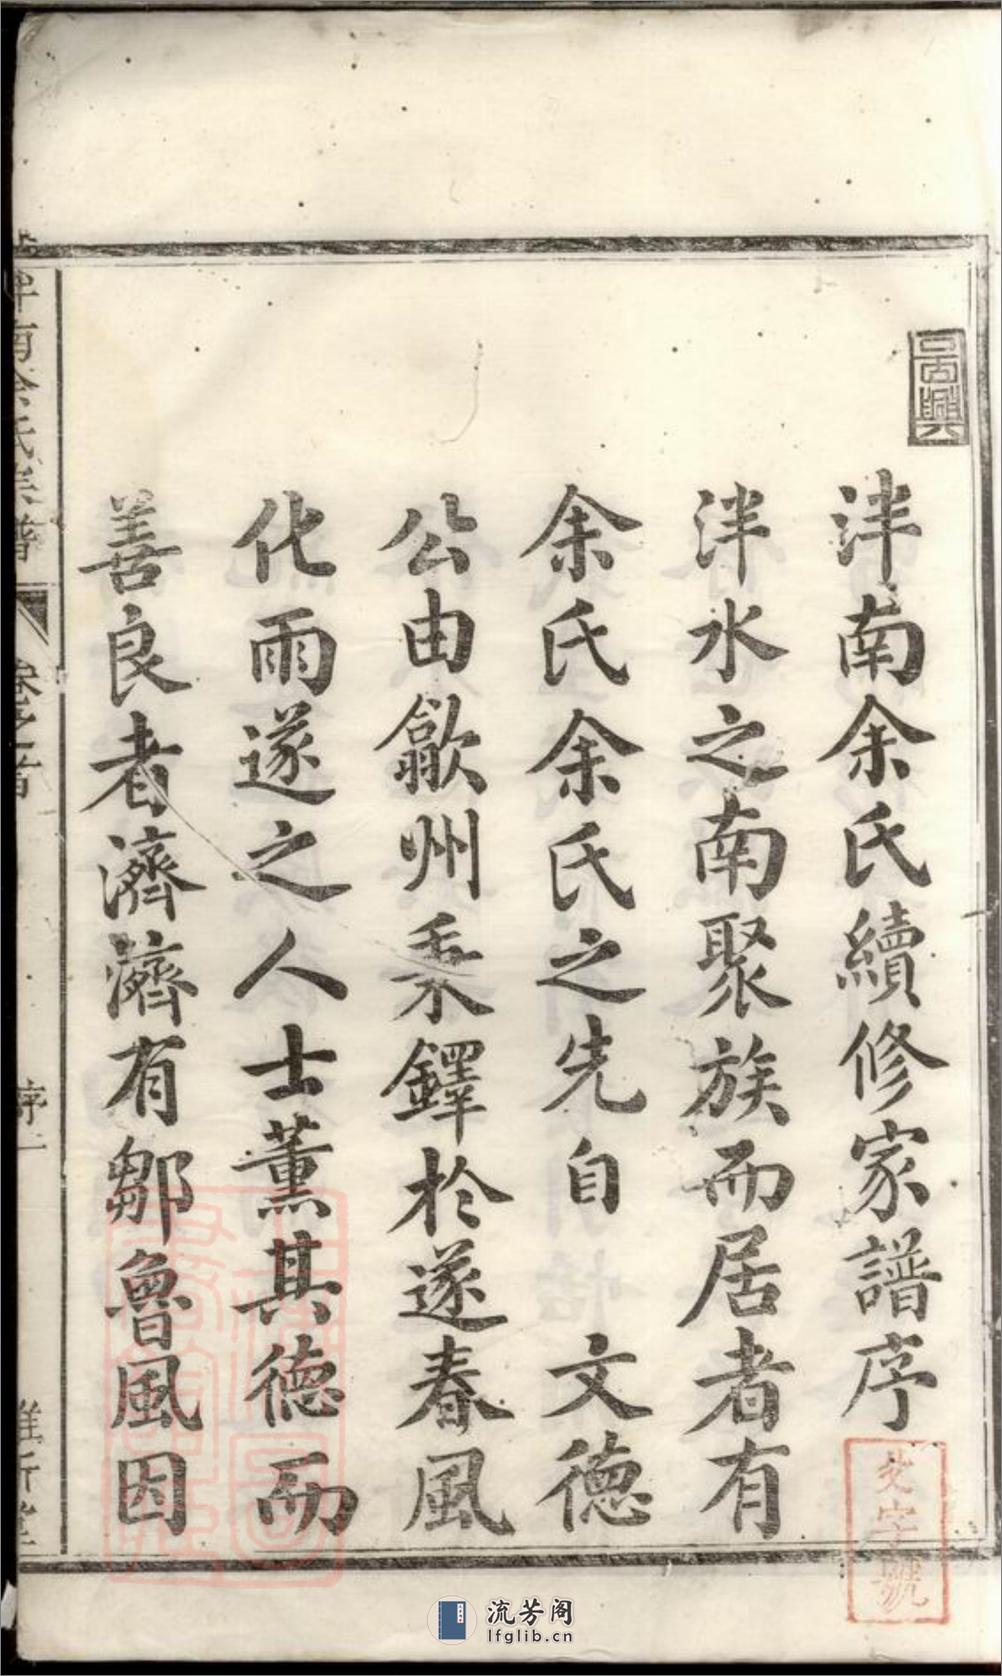 泮南余氏續修家譜序
泮水之南聚族而居者有
余氏余氏之先自 文德
公由歙州秉鐸於遂春風
化雨遂之人士薰其德而
善良者濟濟有鄒魯風因
南余氏宗譜
卷之首
序一
文字號
流芳阁
lfglib.cn